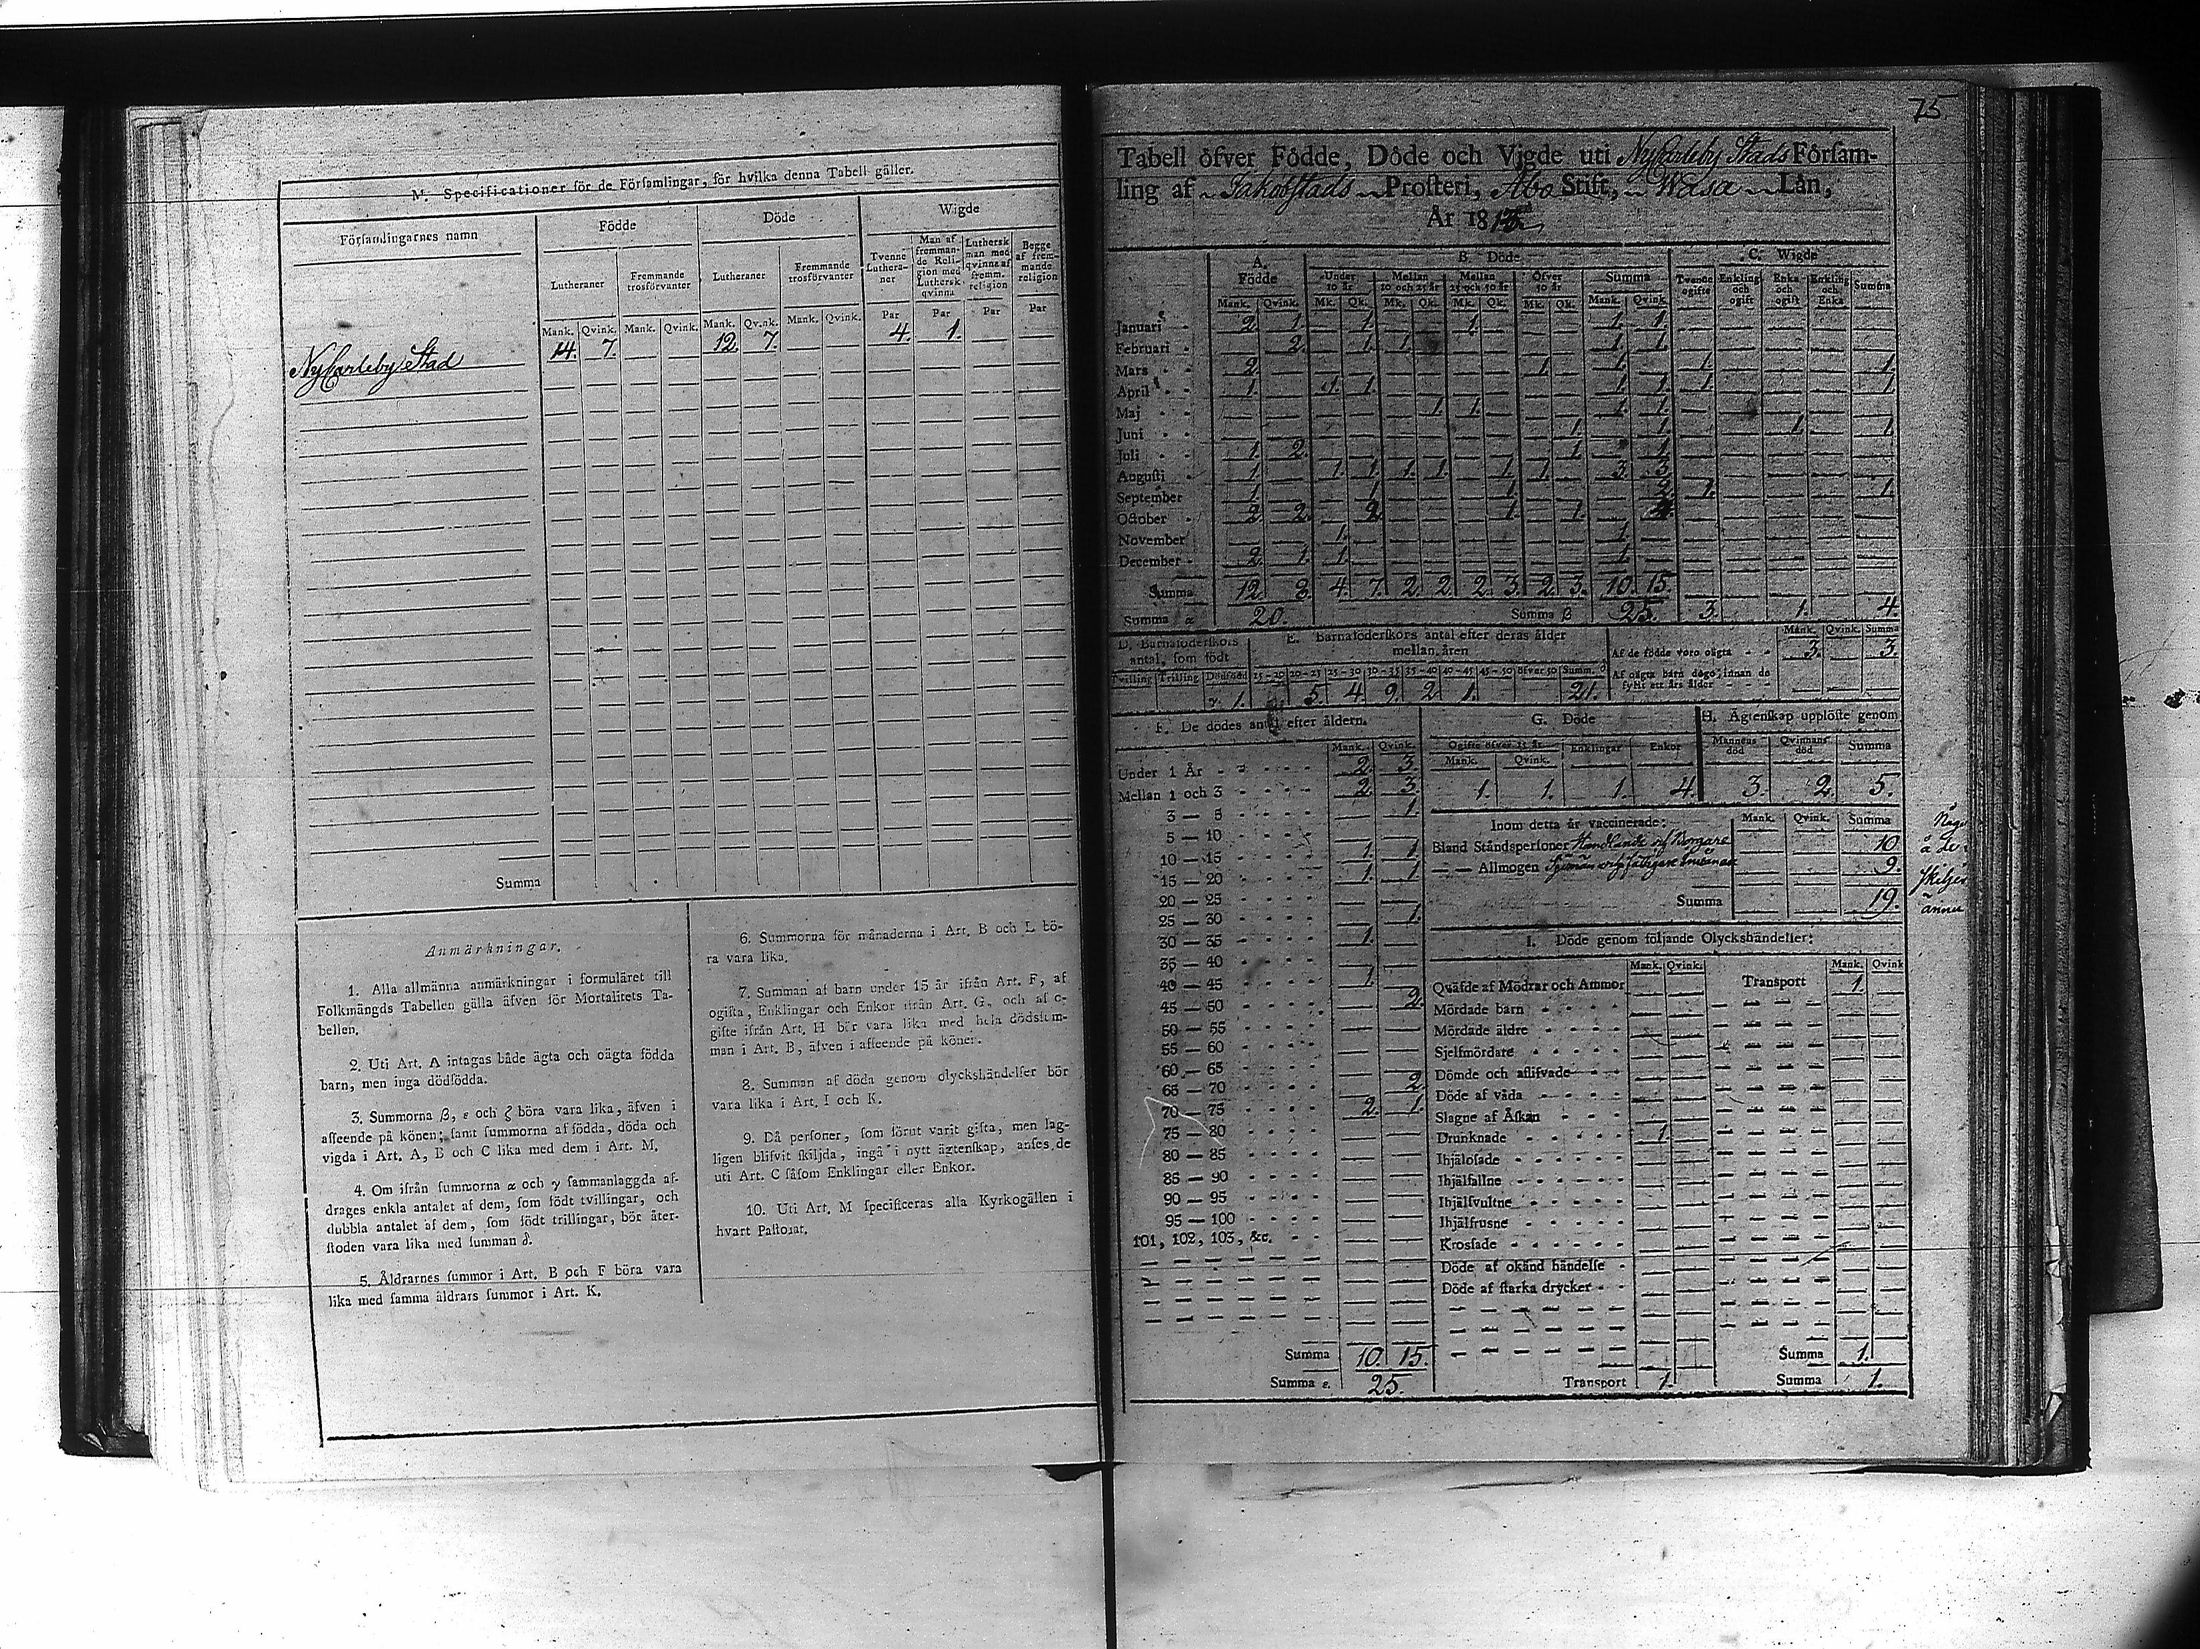 M. Specificationer för de Församlingar, för hvilka denna Tabell gäller.
Församlingarnes namn
Födde
Döde
Wigde
Lutheraner
Fremmande trosförvanter
Lutheraner
Fremmande trosförvanter
Tvenne Lutheraner
Man af fremmande Religion med Luthersk qvinna
Luthersk man med qvinna af fremm. religion
Begge af fremmande religion
Mank. Qvink. Mank. Qvink. Mank. Qvink. Mank. Qvink. Par Par Par Par
NyCarleby Stad 14. 7. 12. 7. 4. 1.
Summa
Anmärkningar.
1. Alla allmänna anmärkningar i formuläret till
Folkmängds Tabellen gälla äfven för Mortalitets Ta-
bellen.
2. Uti Art. A intagas både ägta och oägta födda
barn, men inga dödfödda.
3. Summorna β, ε och ζ böra vara lika, äfven i
afſeende på könen; ſamt ſummorna af födda, döda och
vigda i Art. A, B och C lika med dem i Art. M.
4. Om ifrån ſummorna α och γ ſammanlaggda af-
drages enkla antalet af dem, ſom födt tvillingar, och
dubbla antalet af dem, ſom födt trillingar, bör åter-
ſtoden vara lika med ſumman δ.
5. Åldrarnes ſummor i Art. B och F böra vara
lika med ſamma åldrars ſummor i Art. K.
6. Summorna för månaderna i Art. B och L bö-
ra vara lika.
7. Summan af barn under 15 år ifrån Art. F, af
ogifta, Enklingar och Enkor ifrån Art. G, och af
gifte ifrån Art. H bör vara lika med hela dödsſum-
man i Art. B, äfven i afſeende på könen.
8. Summan af döda genom olyckshändelſer bör
vara lika i Art. I och K.
9. Då perſoner, ſom förut varit gifta, men lag-
ligen blifvit ſkiljda, ingå i nytt ägtenſkap, anſes de
uti Art. C ſåſom Enklingar eller Enkor.
10. Uti Art. M ſpecificeras alla Kyrkogällen i
hvart Paſtorat.
75
Tabell öfver Födde, Döde och Vigde uti NyCarleby Stads Förſam-
ling af Jakobstads Proſteri, Åbo Stift, Wasa Län,
År 1815
A. Födde
B. Döde
C. Wigde
Under 10 år
Mellan 10 och 25 år
Mellan 25 och 50 år
Öfver 50 år
Summa
Tvenne ogifte
Enkling och ogift
Enka och ogift
Enkling och Enka
Summa
Mank. Qvink. Mk. Qk. Mk. Qk. Mk. Qk. Mk. Qk. Mank. Qvink.
Januari 2. 1. 1. 1. 1. 1.
Februari 2. 1. 1. 1. 1.
Mars 2. 1. 1. 1. 1.
April 1. 1. 1. 1. 1. 1. 1.
Maj 1. 1. 1. 1.
Juni 1. 1. 1. 1.
Juli 1. 2. 1. 1.
Auguſti 1. 1. 1. 1. 1. 1. 1. 3. 3.
September 1. 1. 1. 2. 1. 1.
October 2. 2. 2. 1. 1.
November 1. 1.
December 2. 1. 1. 1.
Summa 12. 8. 4. 7. 2. 2. 2. 3. 2. 3. 10. 15.
Summa α 20. Summa β 25. 3. 1. 4.
D. Barnaföderſkors antal, ſom födt
Tvilling Trilling Dödfödd
γ. 1.
E. Barnaföderſkors antal efter deras ålder mellan åren
15-20 20-25 25-30 30-35 35-40 40-45 45-50 öfver 50 Summ. δ
5. 4. 9. 2. 1. 21.
Mank. Qvink. Summa
Af de födde voro oägta 3. 3.
Af oägta barn dogo innan de fyllt ett års ålder
F. De dödes antal efter åldern.
Mank. Qvink.
Under 1 År 2. 3.
Mellan 1 och 3 2. 3.
3 — 5 1.
5 — 10
10 — 15 1. 1.
15 — 20 1. 1.
20 — 25
25 — 30 1.
30 — 35 1.
35 — 40
40 — 45 1.
45 — 50 2.
50 — 55
55 — 60
60 — 65
65 — 70 2.
70 — 75 2. 1.
75 — 80
80 — 85
85 — 90
90 — 95
95 — 100
101, 102, 103, &c.
Summa 10. 15.
Summa ε. 25.
G. Döde
Ogifte öfver 15 år
Enklingar
Enkor
Mank. Qvink.
1. 1. 1. 4.
H. Ägtenſkap upplöſte genom
Mannens död
Qvinnans död
Summa
3. 2. 5.
Inom detta år vaccinerade: Mank. Qvink. Summa
Bland Ståndsperſoner Handlande och Borgare 10
— — Allmogen 9.
Summa 19.
I. Döde genom följande Olyckshändelſer:
Mank. Qvink. Mank. Qvink
Qväfde af Mödrar och Ammor
Transport 1.
Mördade barn
Mördade äldre
Sjelfmördare
Dömde och aflifvade
Döde af våda
Slagne af Åſkan
Drunknade 1.
Ihjäloſade
Ihjälfallne
Ihjälſvultne
Ihjälfrusne
Kroſſade
Döde af okänd händelſe
Döde af ſtarka drycker
Summa 1.
Transport 1.
Summa 1.
ännu